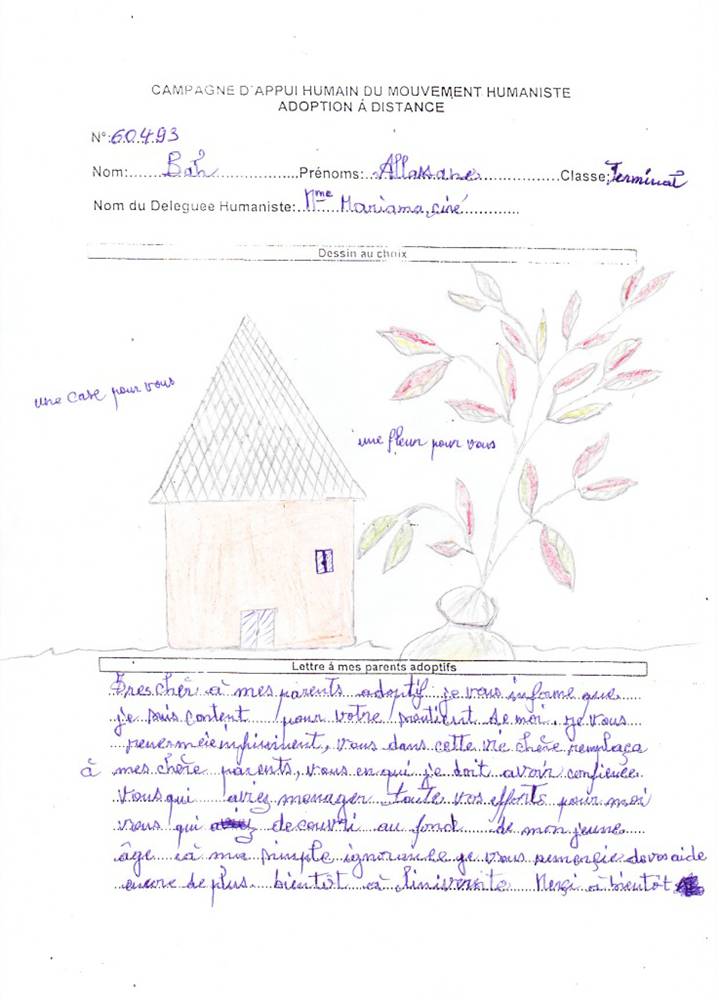 CAMPAGNE D'APPUI HUMAIN DU MOUVEMENT HUMANISTE
ADOPTION Á DISTANCE
N°:60493
Nom: Bah Prénoms: Allassane Classe: Terminal
Nom du Deleguee Humaniste: Mme Mariama ciré
Dessin au choix
une case pour vous
une fleur pour vous
Lettre à mes parents adoptifs
Tres chèr à mes parents adoptif je vous informe que
je suis content pour votre soutient de moi. je vous
infiniment, vous dans cette vie chère remplaça
à mes chère parents, vous en qui je doit avoir confience
Vous qui aviez menager toute vos efforts pour moi
vous qui decouvri au fond de mon jeune
âge à ma simple ignorance je vous remerçie de vos aide
encore de plus bientôt à Merçi à bientôt